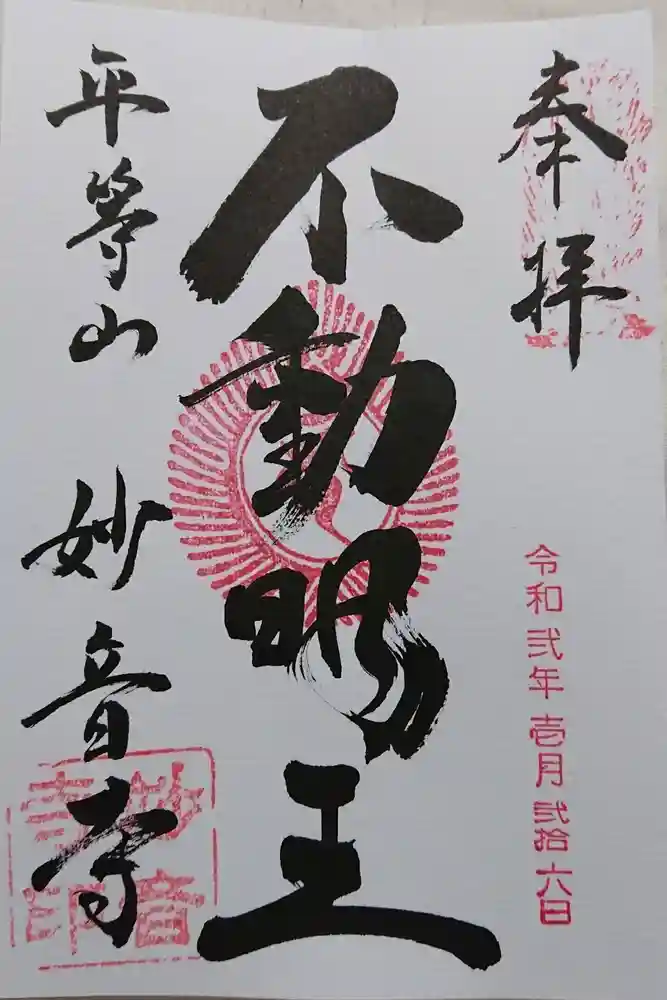 奉拝
令和弐年壱月弐拾六日
不動明王
平等山 妙音寺
妙音
寺印